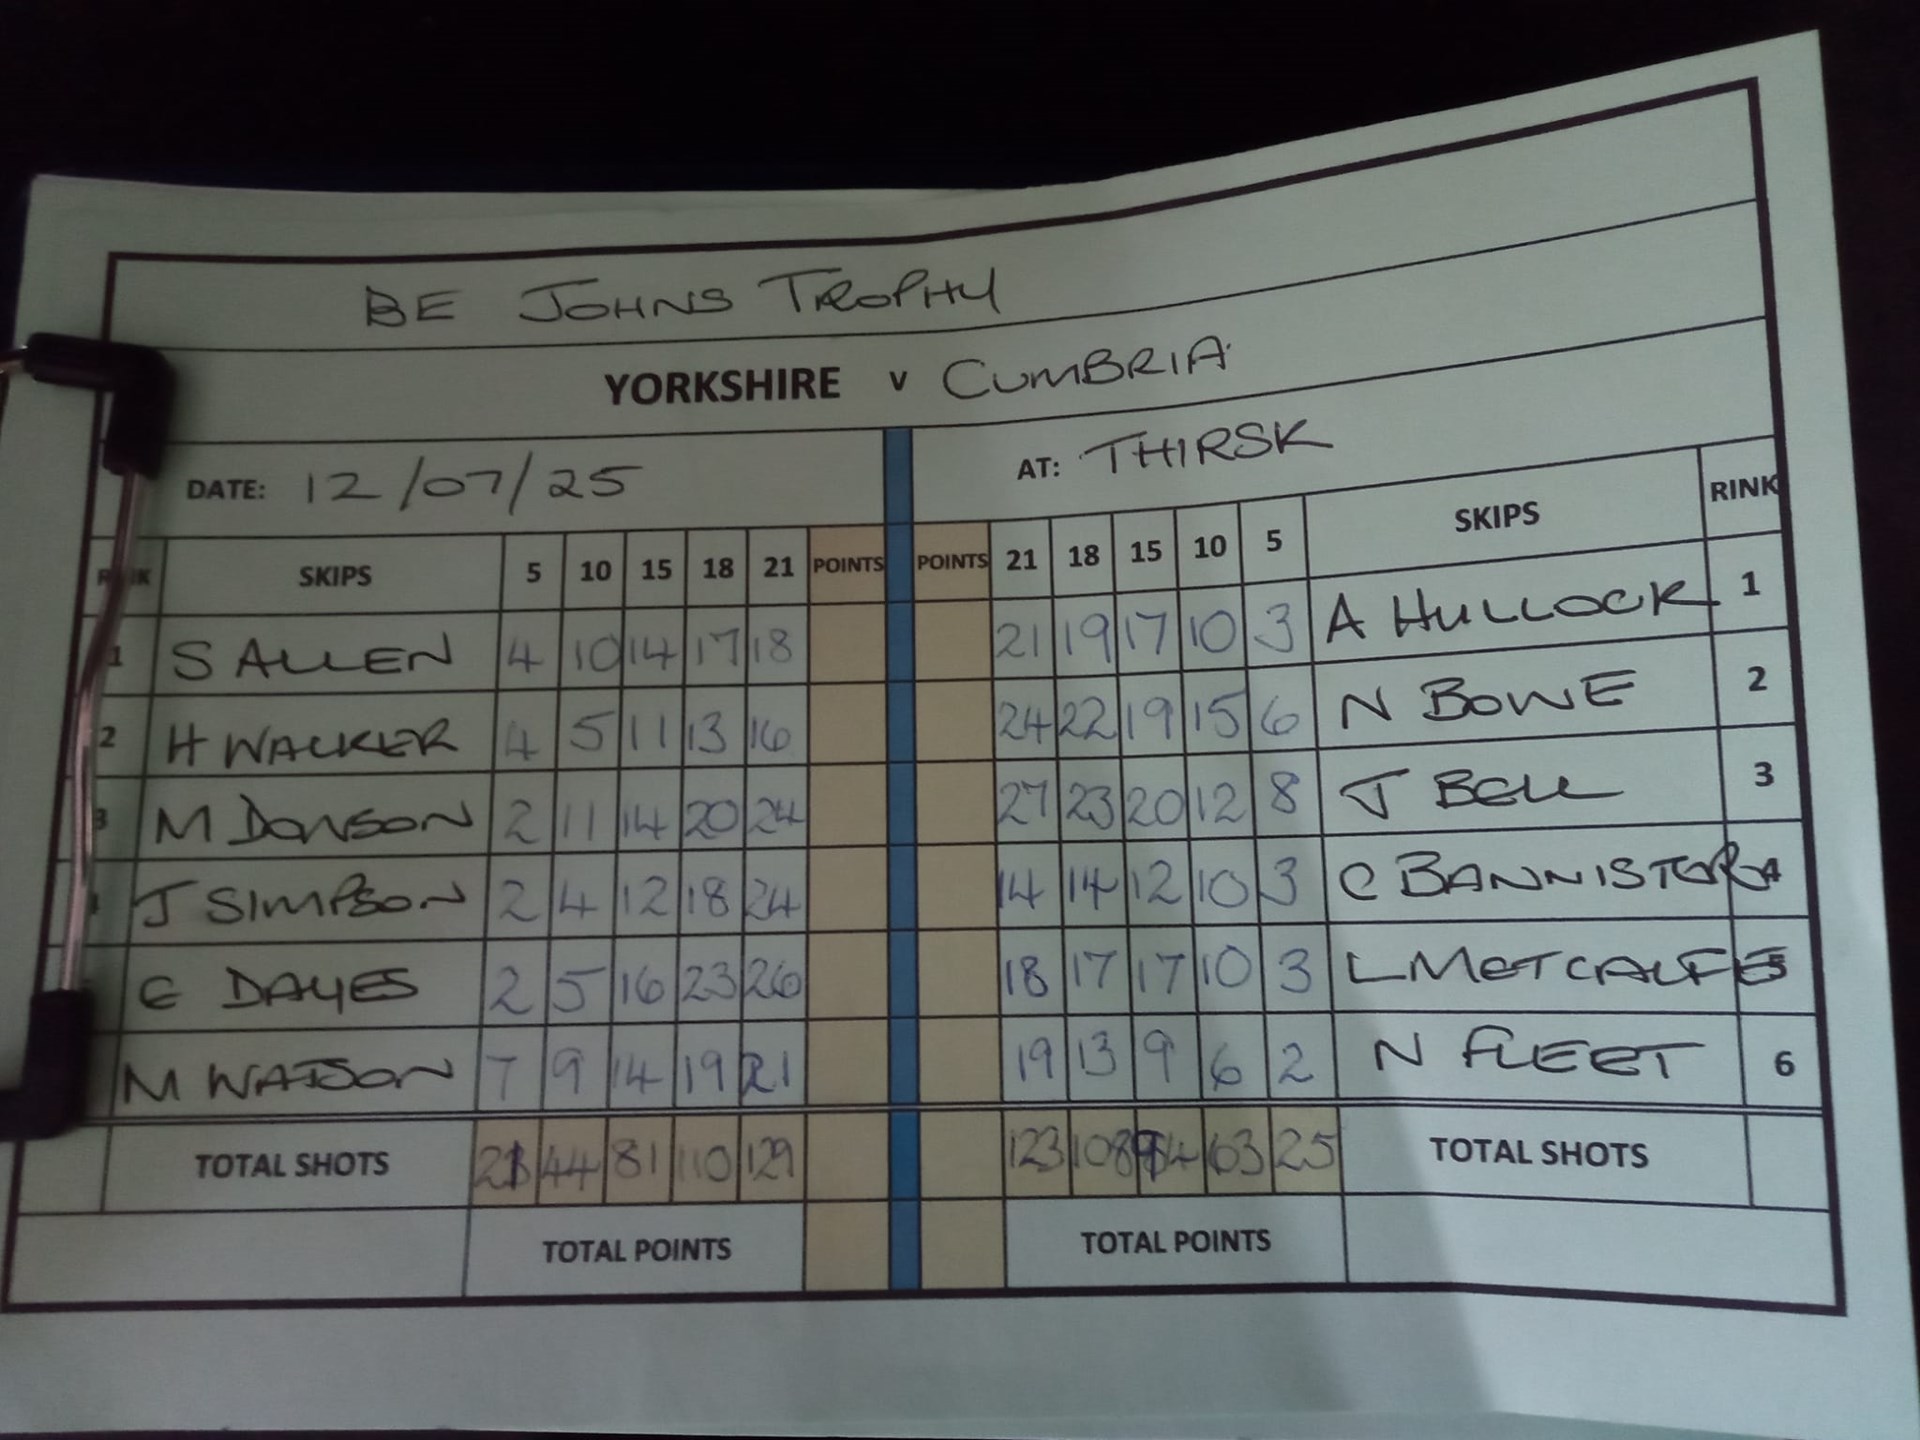 BE JOHNS TROPHY
YORKSHIRE v CUMBRIA
DATE: 12/07/25 AT: THIRSK
RINK SKIPS 5 10 15 18 21 POINTS POINTS 21 18 15 10 5 SKIPS RINK
1 S ALLEN 4 10 14 17 18 21 19 17 10 3 A HULLOCK 1
2 H WALKER 4 5 11 13 16 24 22 19 15 6 N BOWE 2
3 M DOWSON 2 11 14 20 24 27 23 20 12 8 J BELL 3
J SIMPSON 2 4 12 18 24 14 14 12 10 3 C BANNISTER 4
C DAYES 2 5 16 23 26 18 17 17 10 3 L METCALFE 5
M WATSON 7 9 14 19 21 19 13 9 6 2 N FLEET 6
TOTAL SHOTS 21 44 81 110 129 123 108 94 63 25 TOTAL SHOTS
TOTAL POINTS TOTAL POINTS